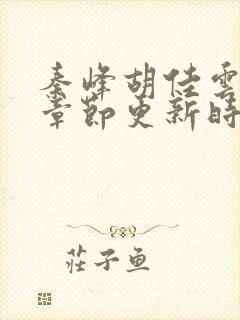 秦峰胡佳雲
章節更新時
莊子魚